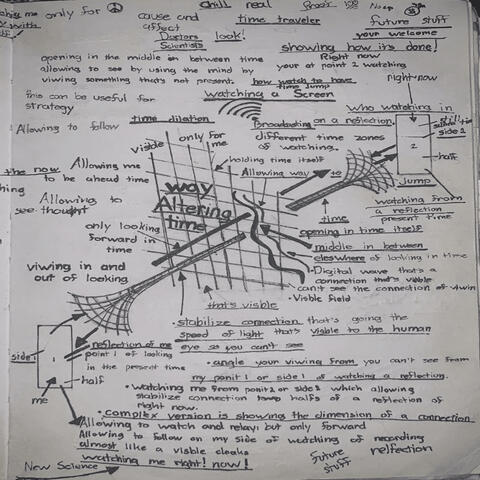 me only for
chill real
Proof
cause and
affect
time traveler
future stuff
your welcome
Doctors look!
Scientists
showing how it's done!
opening in the middle in between time
Right now
allowing to see by using the mind by
your at point 2 watching
viwing something that's not present.
how watch to have
time Jump
right now
this can be useful for
strategy
watching a Screen
who watching in
Allowing to follow
time dilation
Broadcasting on a reflection.
still time
side 2
2
half
visible
only for
me
different time zones
of watching.
holding time itself
the now
Allowing me
to be ahead time
Allowing way to
Jump
Allowing to
see thought
way
Altering
time
watching from
a reflection
present time
time
opening in time itself
only looking
forward in
time
middle in between
elsewhere of looking in time
Digital wave that's a
connection that's visible
can't see the connection of viwin
Visible field
viwing in and
out of looking
that's visible
stabilize connection that's going the
speed of light that's visible to the human
eye so you can't see
side 1
1
half
me
reflection of me
point 1 of looking
in the present time
angle your viwing from you can't see from
my point 1 or side 1 of watching a reflection.
watching me from point 2 or side 2 which allowing
stabilize connection two halfs of a reflection of
right now.
complex version is showing the dimension of a connection
Allowing to watch and relay but only forward
Allowing to follow on my side of watching of recording
almost like a visible cloaks
relfection
watching me right! now!
future
stuff
New Science